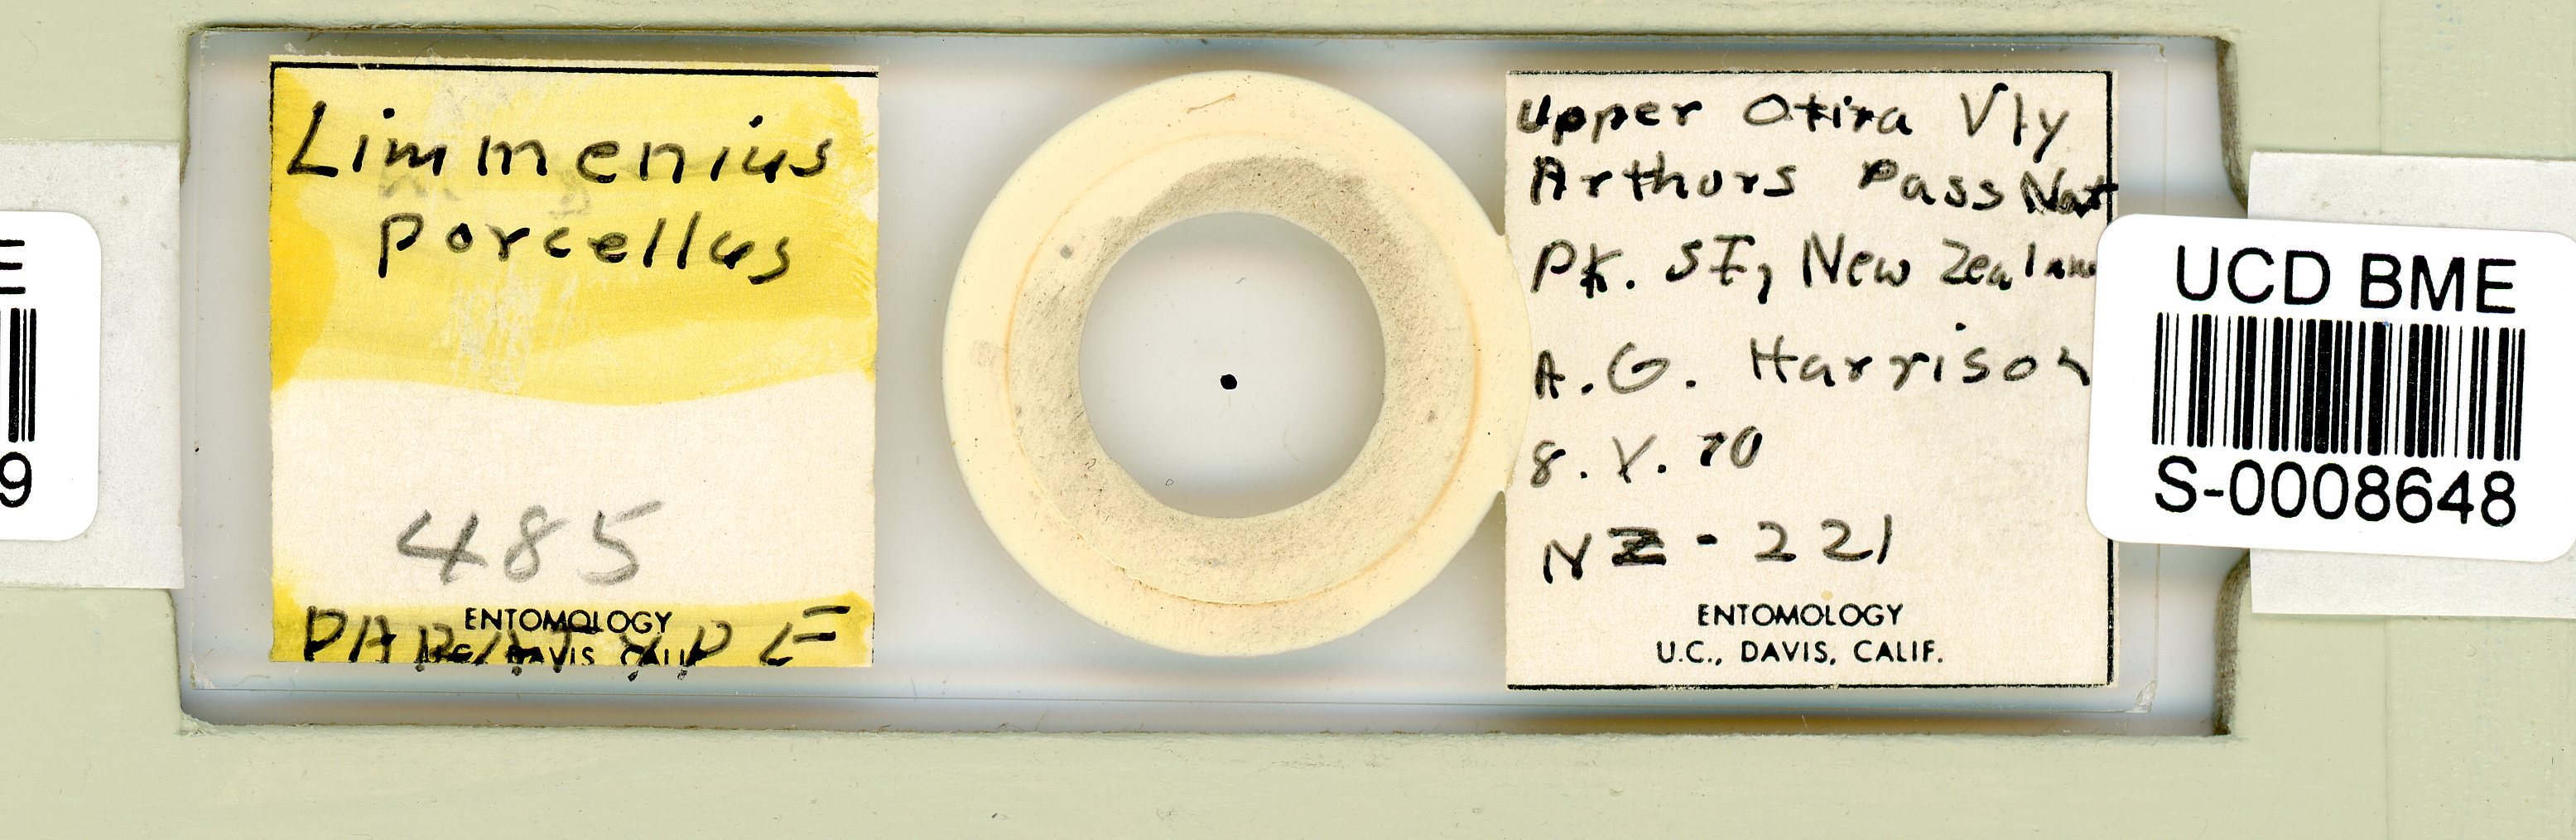 Limmenius
porcellus
485
PARATYPE
ENTOMOLOGY
U.C., DAVIS, CALIF.
Upper Otira Vly
Arthurs Pass Nat
Pk. SI, New Zealand
A.G. Harrison
8.X.70
NZ-221
ENTOMOLOGY
U.C., DAVIS, CALIF.
UCD BME
S-0008648
E
9